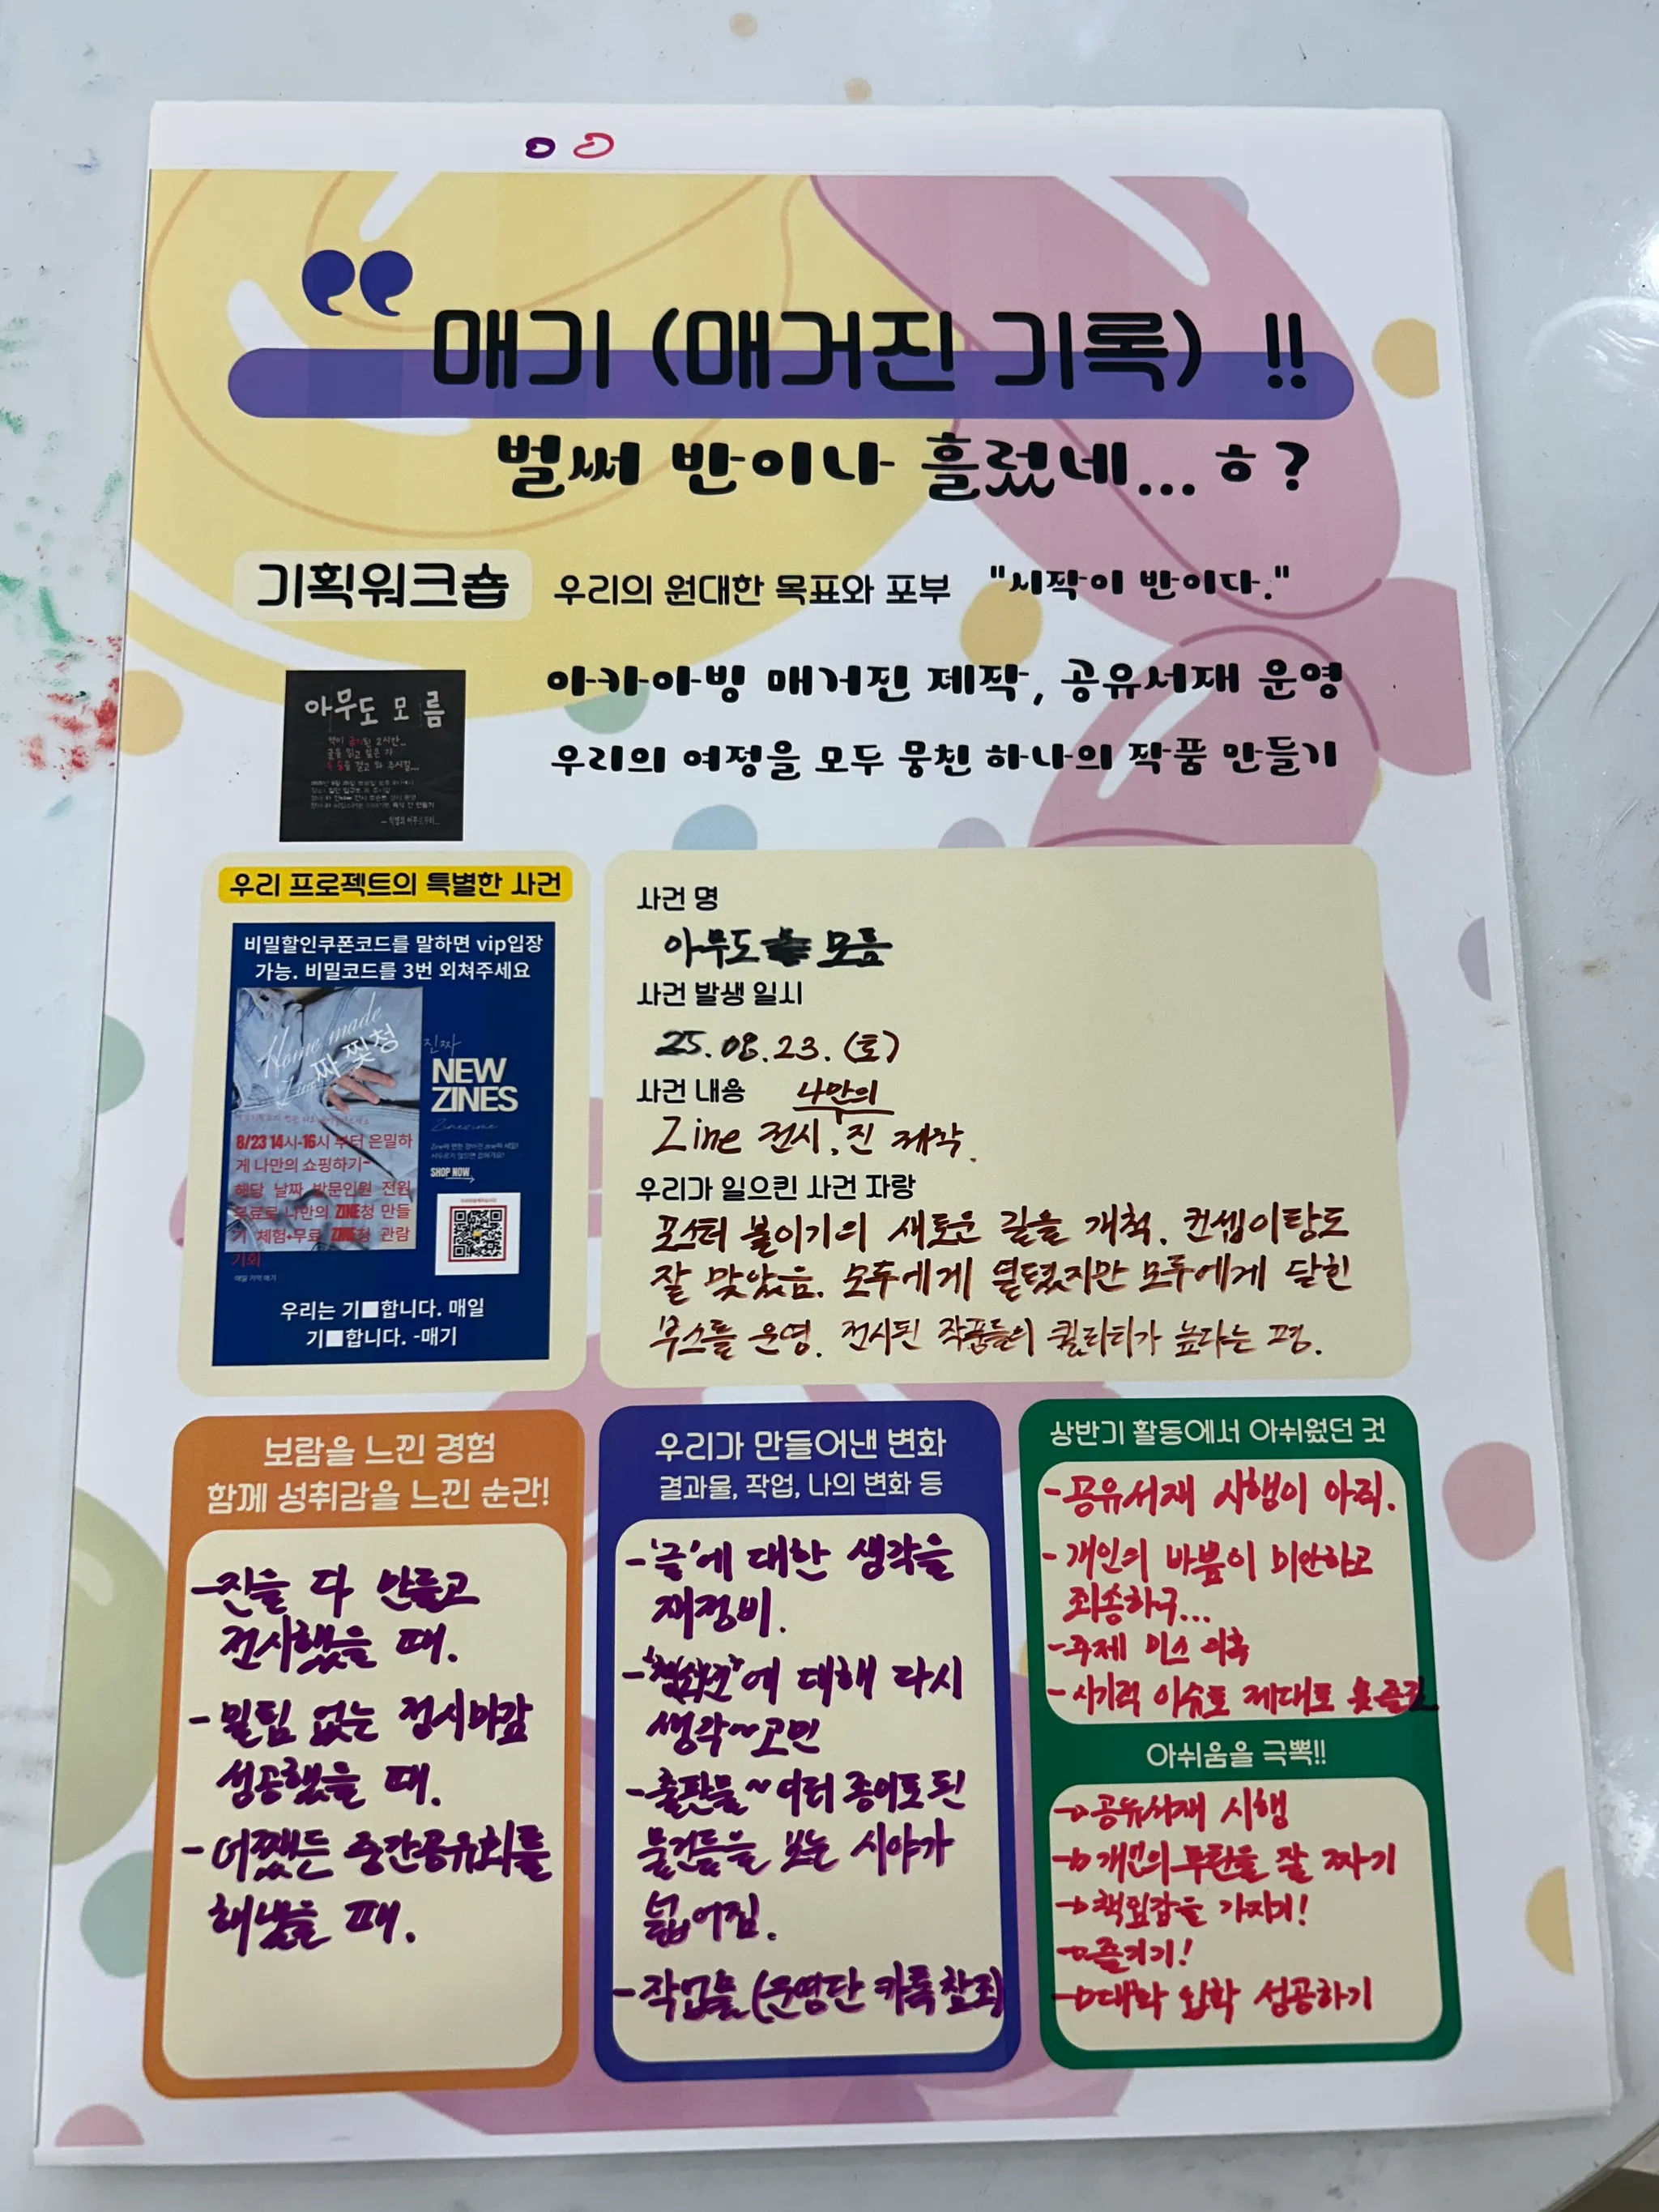 매기 (매거진 기록) !!
벌써 반이나 흘렀네...ㅎ?
기획워크숍 우리의 원대한 목표와 포부 "시작이 반이다."
아카이빙 매거진 제작, 공유서재 운영
우리의 여정을 모두 뭉친 하나의 작품 만들기
아무도 모름
책이 금지된 2시간..
글을 읽고 싶은 자
목숨을 걸고 와 주시길...
우리 프로젝트의 특별한 사건
비밀할인쿠폰코드를 말하면 vip입장
가능. 비밀코드를 3번 외쳐주세요
Home made
Zine
짜 찢청
진짜
NEW
ZINES
Zinezime
SHOP NOW
8/23 14시-16시 부터 은밀하
게 나만의 쇼핑하기~
해당 날짜 방문인원 전원
무료로 나만의 ZINE청 만들
기 체험+무료 ZINE청 관람
기회
매일 기억 매기
우리는 기■합니다. 매일
기■합니다. -매기
사건 명
아무도 모름
사건 발생 일시
25.08.23. (토)
사건 내용
나만의
Zine 전시, 진 제작.
우리가 일으킨 사건 자랑
포스터 붙이기의 새로운 길을 개척. 컨셉이랑도
잘 맞았음. 모두에게 열렸지만 모두에게 닫힌
부스를 운영. 전시된 작품들의 퀄리티가 높다는 평.
보람을 느낀 경험
함께 성취감을 느낀 순간!
-진을 다 만들고
전시했을 때.
- 밀림 없는 정시마감
성공했을 때.
- 어쨌든 중간공유회를
해냈을 때.
우리가 만들어낸 변화
결과물, 작업, 나의 변화 등
-'글'에 대한 생각을
재정비.
-에 대해 다시
생각~고민
-출판물~여러 종이로 된
물건들을 보는 시야가
넓어짐.
-작업물 (운영단 카톡 참조)
상반기 활동에서 아쉬웠던 것
-공유서재 시행이 아직.
- 개인의 바쁨이 미안하고
죄송하구...
-주제 미스 의혹
- 사기력 이슈로 제대로 못즐김
아쉬움을 극뽁!!
→공유서재 시행
→개인의 루틴을 잘 짜기
→책임감을 가지기!
→즐기기!
→대학 입학 성공하기